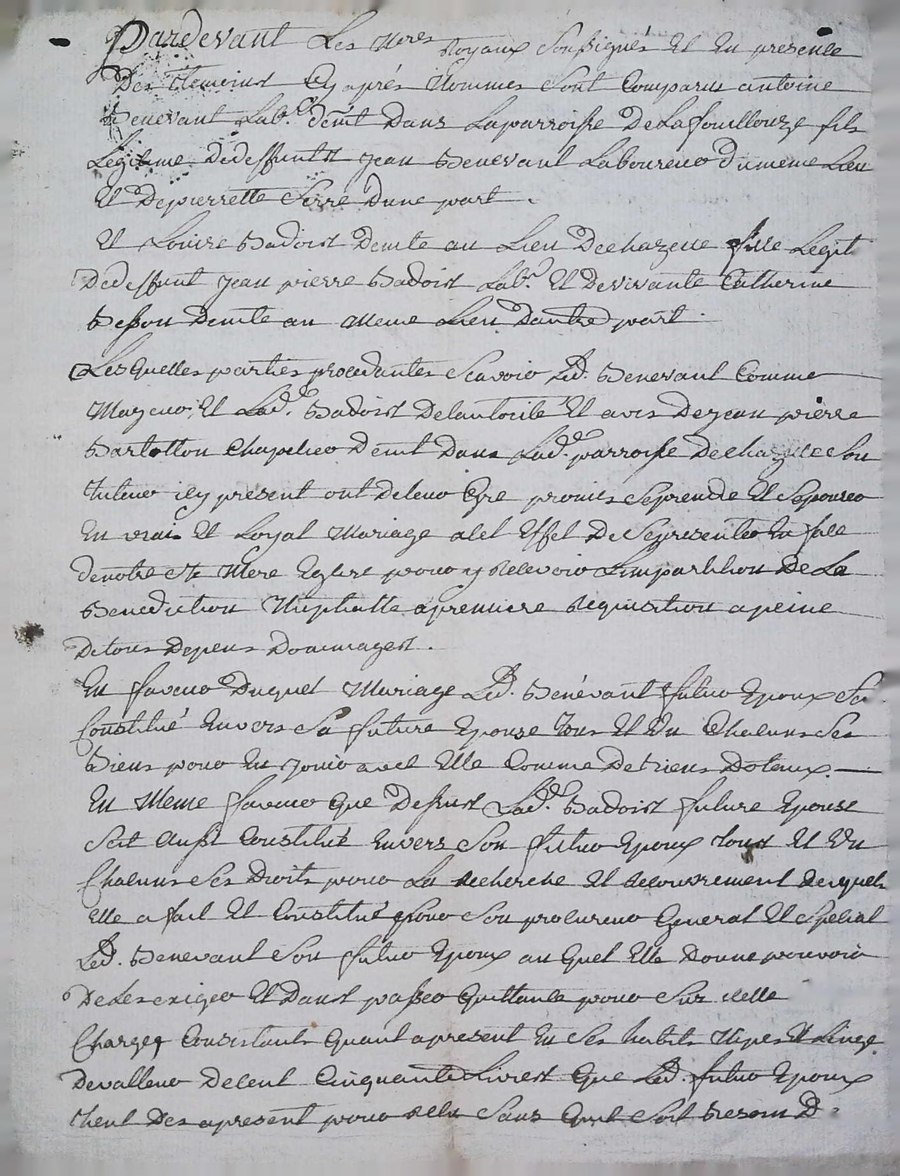 Pardevant Les Nres Royaux Soussignés Et En presence
Des temoins Cy aprés Nommes Sont Comparus antoine
Benevant Lab.r demt Dans Laparroisse DeLafouillouze fils
Legitime Dedeffunts jean Benevant Laboureur Dumeme Lieu
Et Depierrette Serre Dune part.
Et Louise Badoist Demte au Lieu Dechazelle fille Legit
Dedeffunt jean pierre Badoist Lab.r Et Devivante Catherine
Besson Demte au Meme Lieu Dautre part.
Lesquelles parties procedantes Scavoir Led. Benevant Comme
Majeur, Et Lad.e Badoist Delautorité Et avis Dejean pierre
Bartollon Chapelier Demt Dans Lad.e parroisse Dechazelle Son
Tuteur icy present ont Deleur Gre promis Seprendre Et Sepouser
En vrai Et Loyal Mariage alef Effet De Sepresenter En face
denotre Ste Mere Eglise pour y Recevoir Limpartition De La
Benediction Nuptialle apremiere Requisition apeine
Detous Depens Dommagest.
En faveur Duquel Mariage Led. Benévant futur Epoux Sest
Constitué Envers Sa future Epouse Tous Et Un Chacuns Ses
Biens pour En Jouir avec Elle Comme De Biens Dotaux.
En Meme faveur Que Dessust Lad.e Badoist future Epouse
Sest Aussi Constitué Envers Son futur Epoux Toust Et Un
Chacuns Ses Droits pour La Recherche Et Recouvrement Desquels
Elle a fait Et Constitué pour Son procureur General Et Special
Led. Benevant Son futur Epoux au Quel Elle Donne pouvoir
De Les exiger Et Danst passer Quittance pour Sur icelle
Charges Consistants Quant apresent En Ses habits Nipes Et Linge
Devalleur Decent Cinquante Livrest Que Led. futur Epoux
tient Des apresent pour Sans Quil Soit Besoin D.